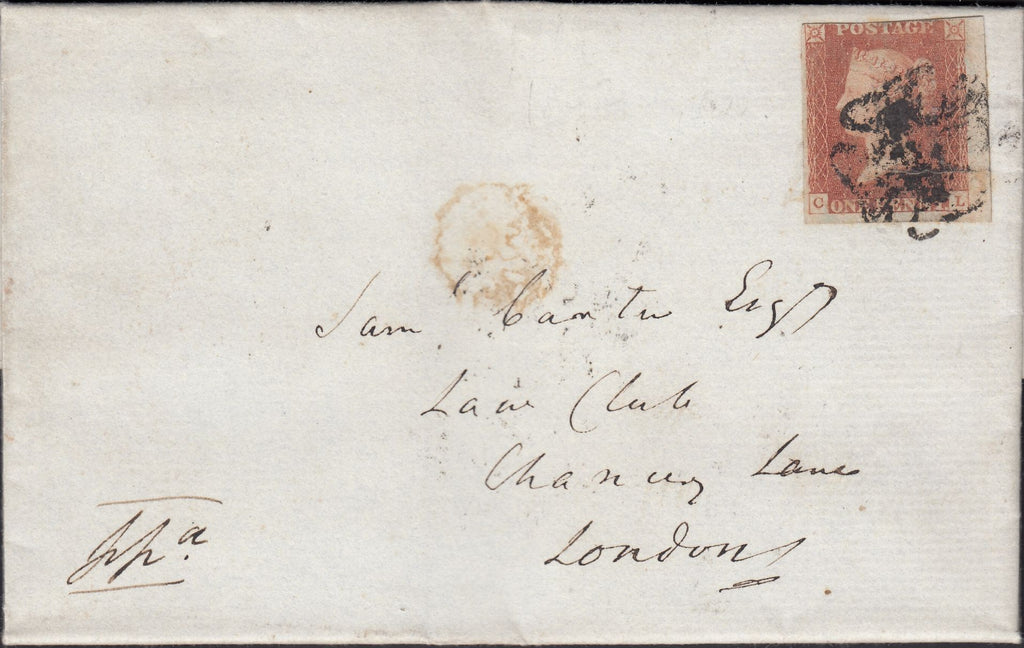 POSTAGE
C ONE PENNY L
Sam Carter Esqr
Law Club
Chancery Lane
London
ppd